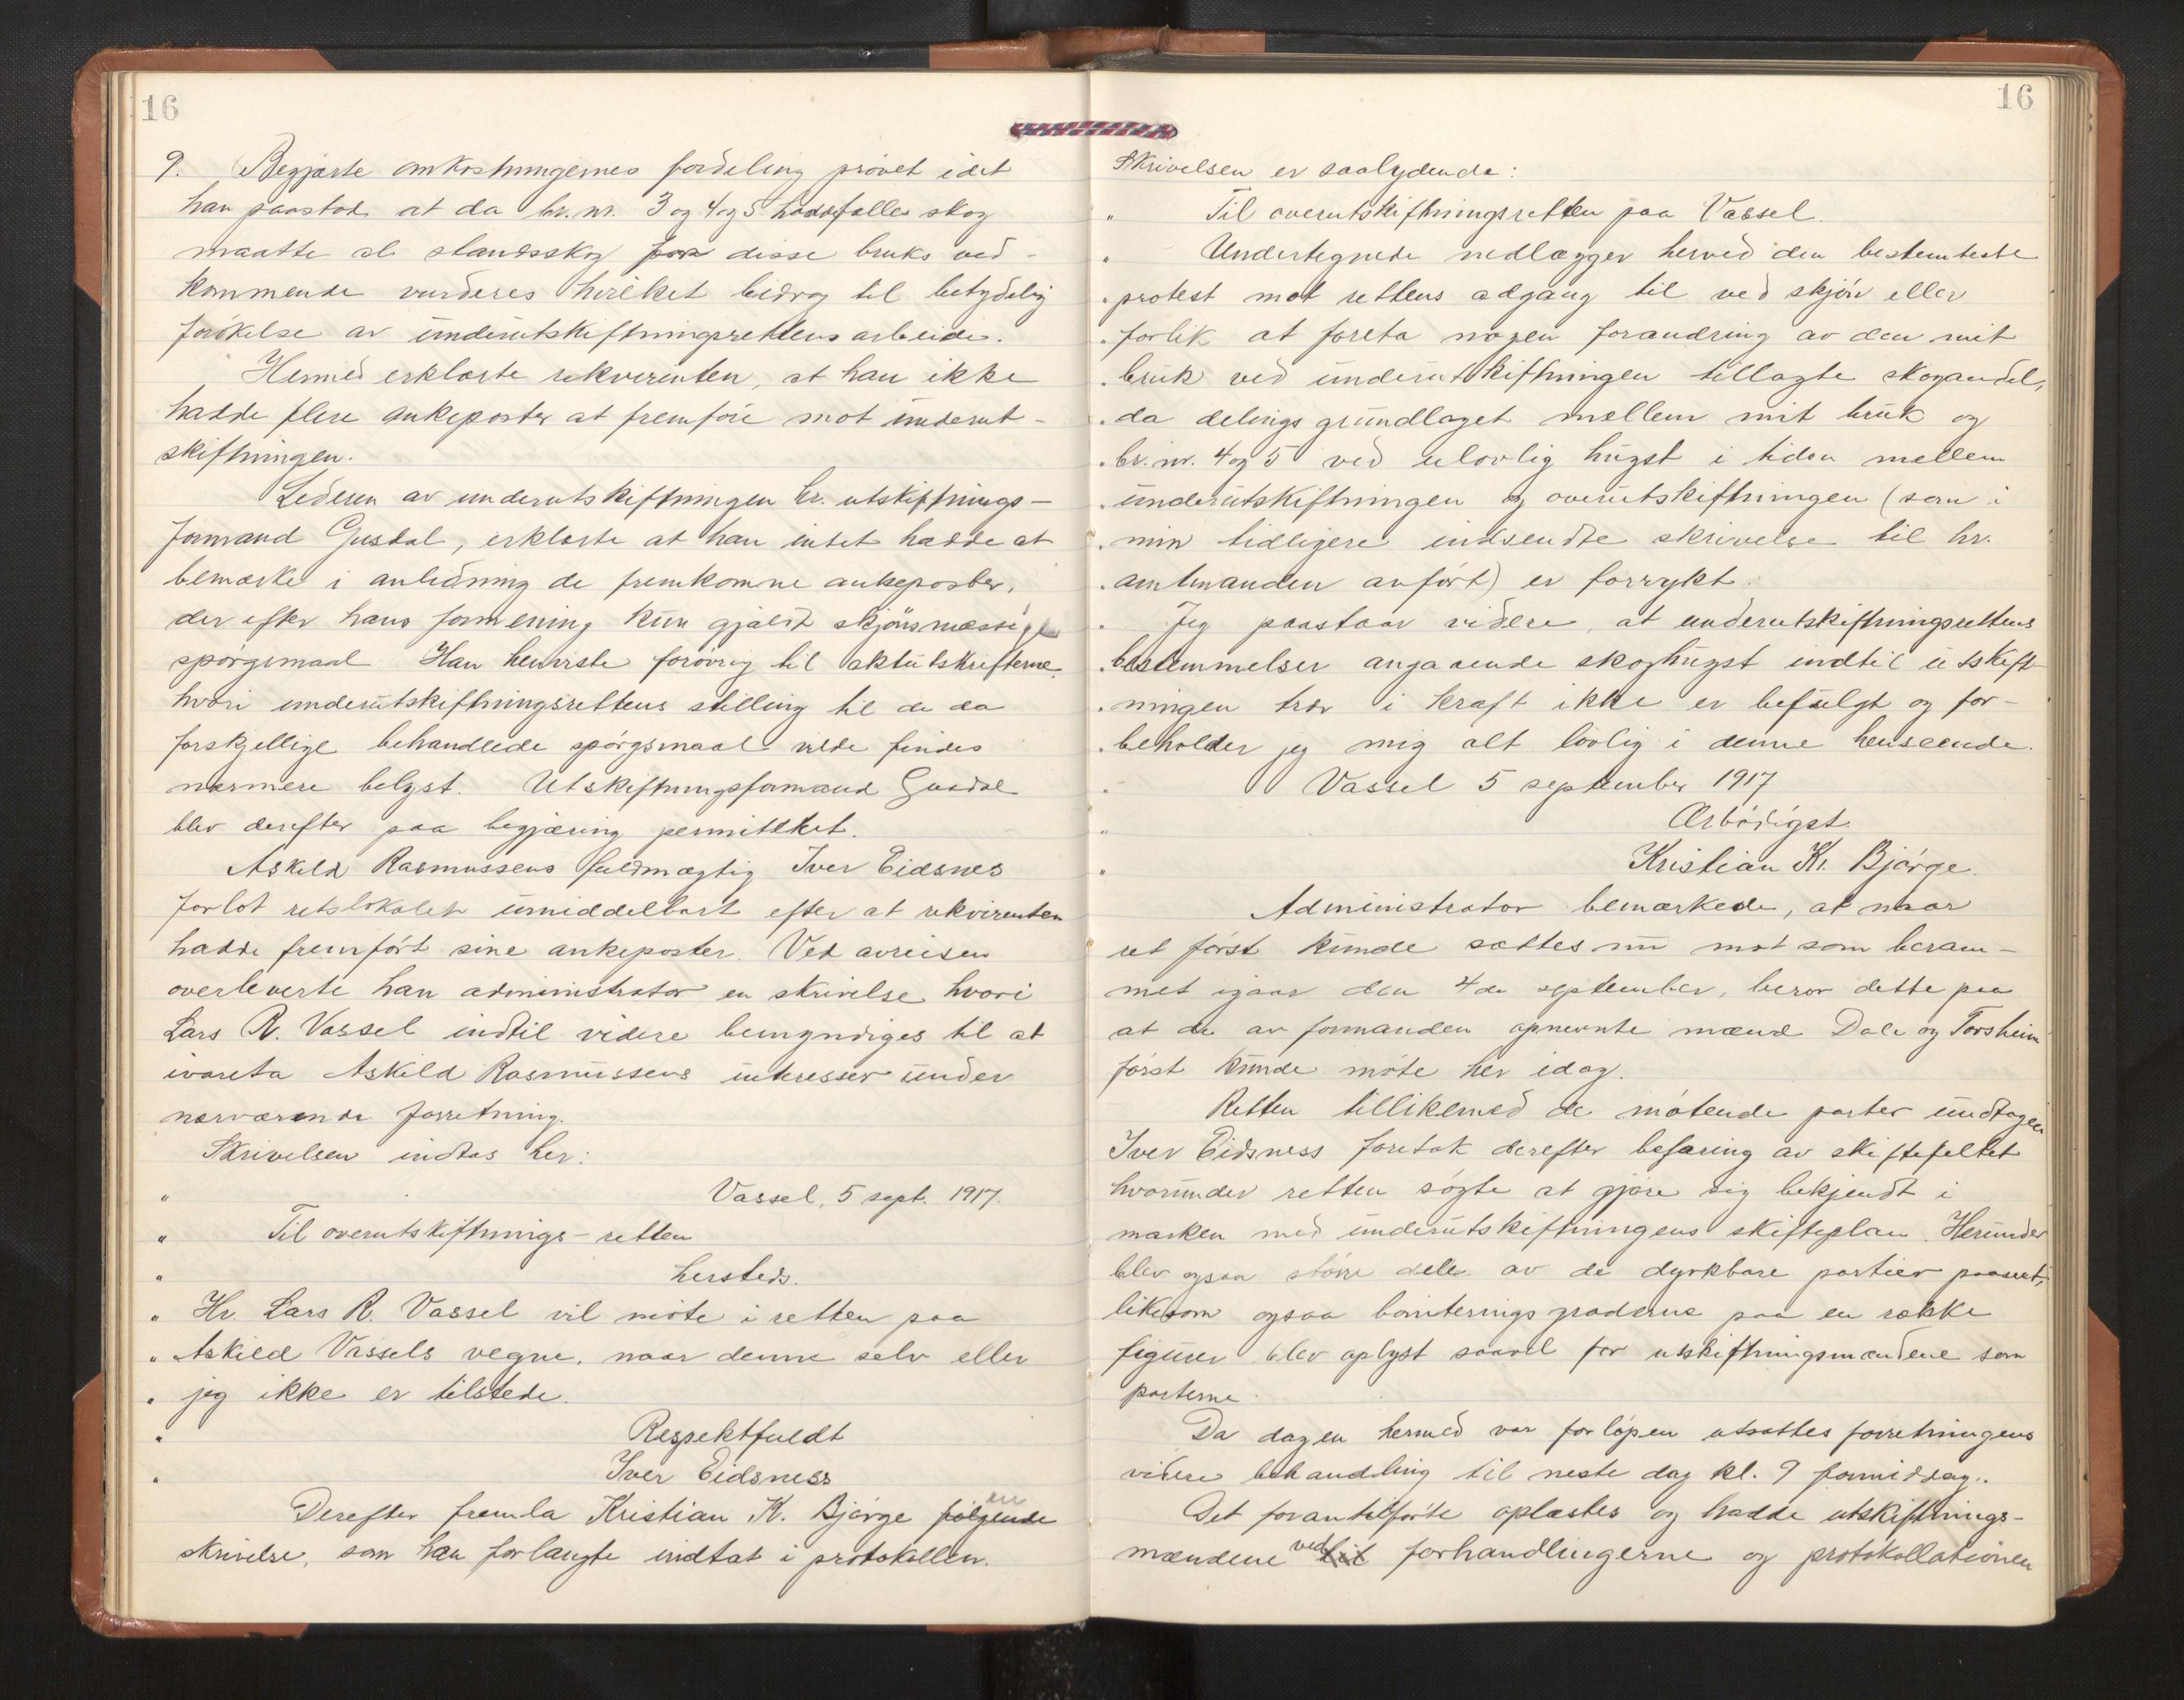 16
9. Begjærte omkostningernes fordeling prøvet idet
han paastod at da br. nr. 3 og 4 og 5 hadde fælles skog
maatte al standsskog for disse bruks ved-
kommende vurderes hvilket bidrog til betydelig
forøkelse av underutskiftningsrettens arbeide.
Hermed erklærte rekvirenten, at han ikke
hadde flere ankeposter at fremføre mot underut-
skiftningen.
Lederen av underutskiftningen hr. utskiftnings-
formand Gusdal, erklærte at han intet hadde at
bemærke i anledning de fremkomne ankeposter,
der efter hans formening kun gjaldt skjønsmæssige
spørgsmaal. Han henviste forøvrig til aktutskrifterne,
hvori underutskiftningsrettens stilling til de da
forskjellige behandlede spørgsmaal vilde findes
nærmere belyst. Utskiftningsformand Gusdal
blev derefter paa begjæring permittert.
Askild Rasmussens fuldmægtig Iver Eidsnes
forlot retslokalet umiddelbart efter at rekvirenten
hadde fremført sine ankeposter. Ved avreisen
overleverte han administrator en skrivelse hvori
Lars R. Vassel indtil videre bemyndiges til at
ivareta Askild Rasmussens interesser under
nærværende forretning.
Skrivelsen indtas her:
" Vassel, 5 sept. 1917.
" Til overutskiftnings-retten
" hersteds.
" Hr. Lars R. Vassel vil møte i retten paa
" Askild Vassels vegne, naar denne selv eller
" jeg ikke er tilstede.
" Respektfuldt
" Iver Eidsness
Derefter fremla Kristian K. Bjørge følgende en
skrivelse, som han forlangte indtat i protokollen.
16
Skrivelsen er saalydende:
" Til overutskiftningsretten paa Vassel.
" Undertegnede nedlægger herved den bestemteste
" protest mot rettens adgang til ved skjøn eller
" forlik at foreta nogen forandring av den mit
" bruk ved underutskiftningen tillagte skogandel,
" da delingsgrundlaget mellem mit bruk og
" br. nr. 4 og 5 ved ulovlig hugst i tiden mellem
" underutskiftningen og overutskiftningen (som i
" min tidligere indsendte skrivelse til hr.
" amtmanden anført) er forrykt.
" Jeg paastaar videre, at underutskiftningsrettens
" bestemmelser angaaende skoghugst indtil utskift-
" ningen trær i kraft ikke er befulgt og for-
" beholder jeg mig alt lovlig i denne henseende.
" Vassel 5 september 1917
" Ærbødigst
" Kristian Kr. Bjørge.
Administrator bemærkede, at naar
ret først kunde sættes nu mot som beram-
met igaar den 4de september, beror dette paa
at de av formanden opnevnte mænd Dale og Torsheim
først kunde møte her idag.
Retten tillikemed de møtende parter undtagen
Iver Eidsness foretok derefter befaring av skiftefeltet
hvorunder retten søgte at gjøre sig bekjendt i
marken med underutskiftningens skifteplan. Herunder
blev ogsaa større dele av de dyrkbare partier paaseet,
likesom ogsaa boniteringsgraderne paa en række
figurer blev oplyst saavel for utskiftningsmændene som
parterne.
Da dagen hermed var forløpen utsattes forretningens
videre behandling til neste dag kl. 9 formiddag.
Det forantilførte oplæstes og hadde utskiftnings-
mændene ved til forhandlingerne og protokollationen